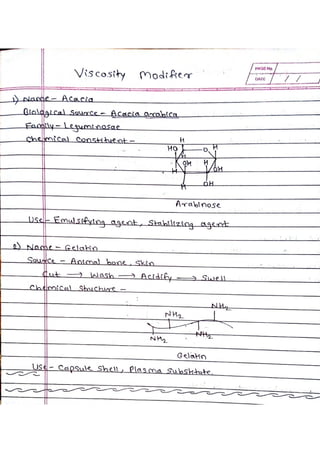 PAGE No.
DATE / /
Viscosity Modifier
1) Name - Acacia
Biological Source - Acacia arabica
Family - Leguminosae
Chemical Constituent -
H
HO O H
H
OH H
H OH
H OH
Arabinose
Use - Emulsifying agent, Stabilizing agent
2) Name - Gelatin
Source - Animal bone, skin
Cut → Wash → Acidify → Swell
Chemical Structure -
NH2 NH2
NH2 NH2
Gelatin
Use - Capsule shell, Plasma Substitute.